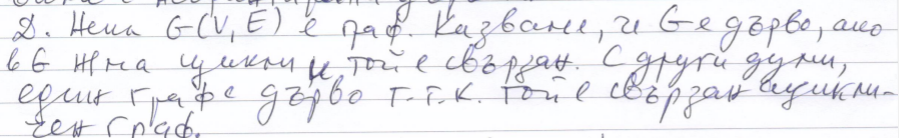 Д. Нека G(V, E) е граф. Казваме, че G е дърво, ако
в G няма цикли и той е свързан. С други думи,
един граф е дърво т.т.к. той е свързан ацикли-
чен граф.